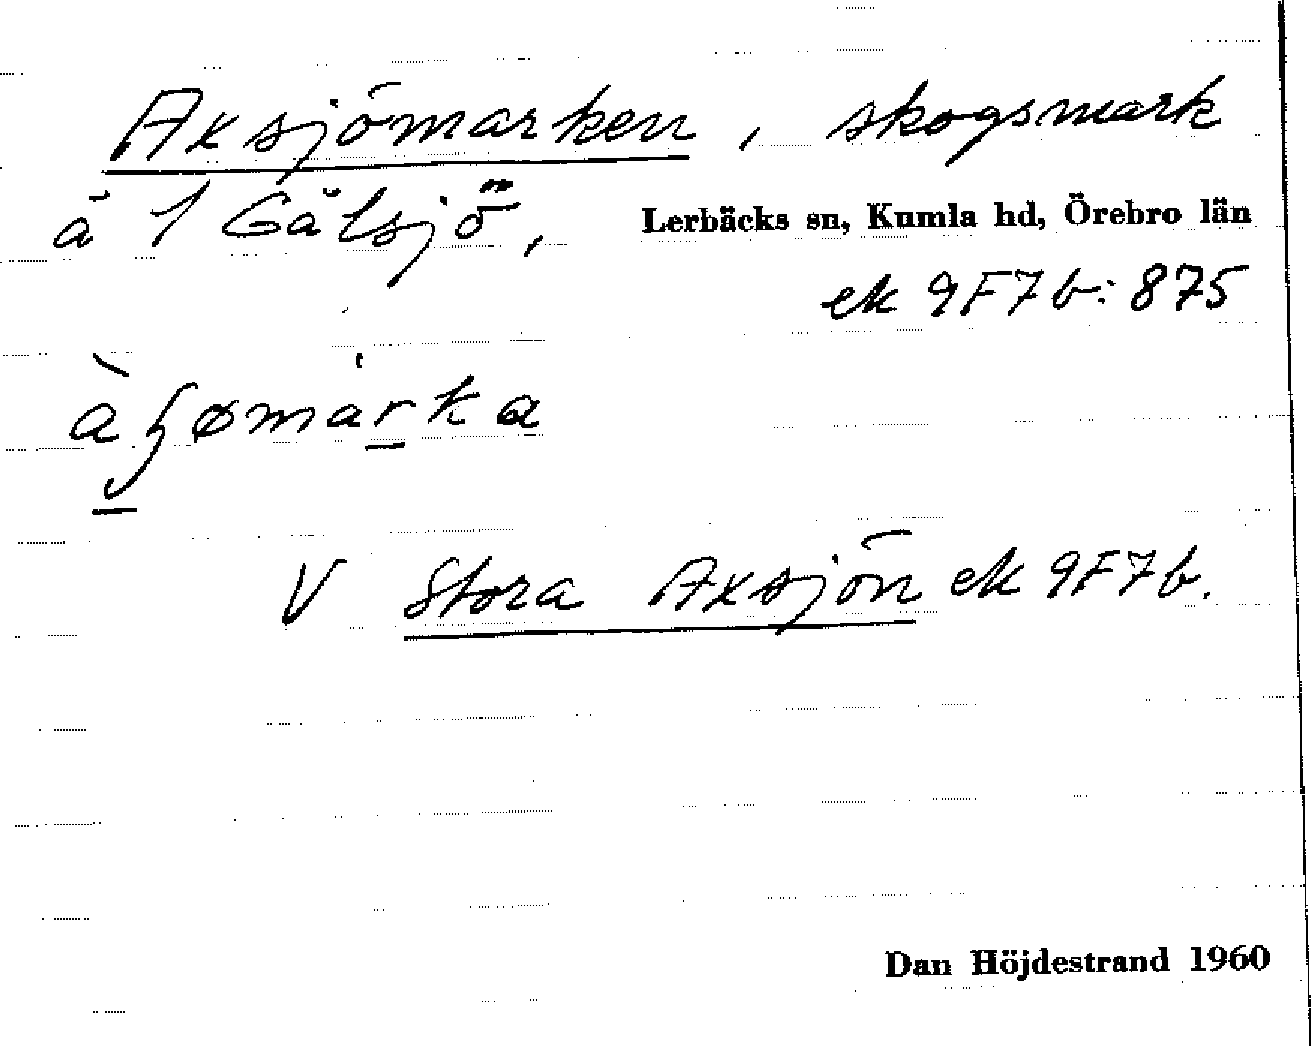 Axsjömarken, skogsmark
å 1 Gålsjö, Lerbäcks sn, Kumla hd, Örebro län
ek 9F7b: 875
V Stora Axsjön ek 9F7b.
Dan Höjdestrand 1960